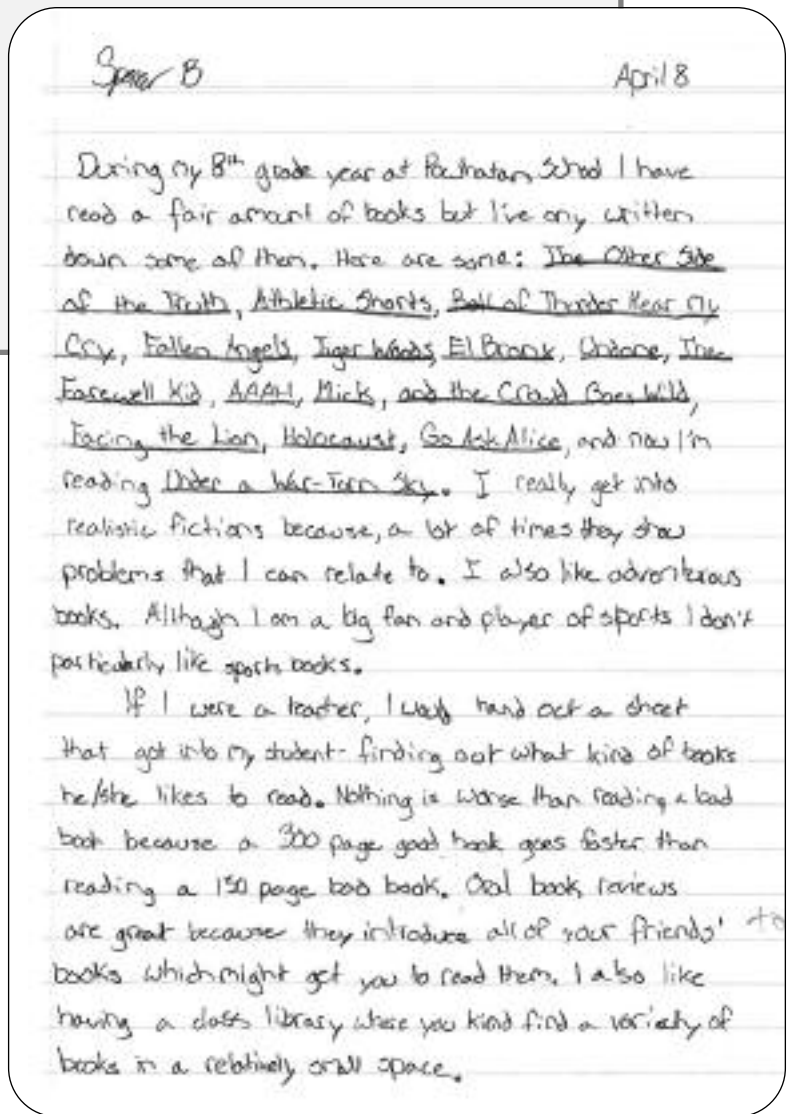 Spencer B April 8
During my 8th grade year at Powhatan School I have
read a fair amount of books but I've ony written
down some of them. Here are some: The Other Side
of the Truth, Athletic Shorts, Roll of Thunder Hear My
Cry, Fallen Angels, Tiger Woods, El Bronx, Undone, The
Farewell Kid, AAAH, Mick, and the Crowd Goes Wild,
Facing the Lion, Holocaust, Go Ask Alice, and now I'm
reading Under a War-Torn Sky. I really get into
realistic fictions because, a lot of times they show
problems that I can relate to. I also like adventerous
books. Although I am a big fan and player of sports I don't
particularly like sports books.
If I were a teacher, I would hand out a sheet
that got into my student- finding out what kind of books
he/she likes to read. Nothing is worse than reading a bad
book because a 300 page good book goes faster than
reading a 150 page bad book. Oral book reviews
are great because they introduce all of your friends' to
books which might get you to read them. I also like
having a class library where you kind find a variety of
books in a relatively small space.